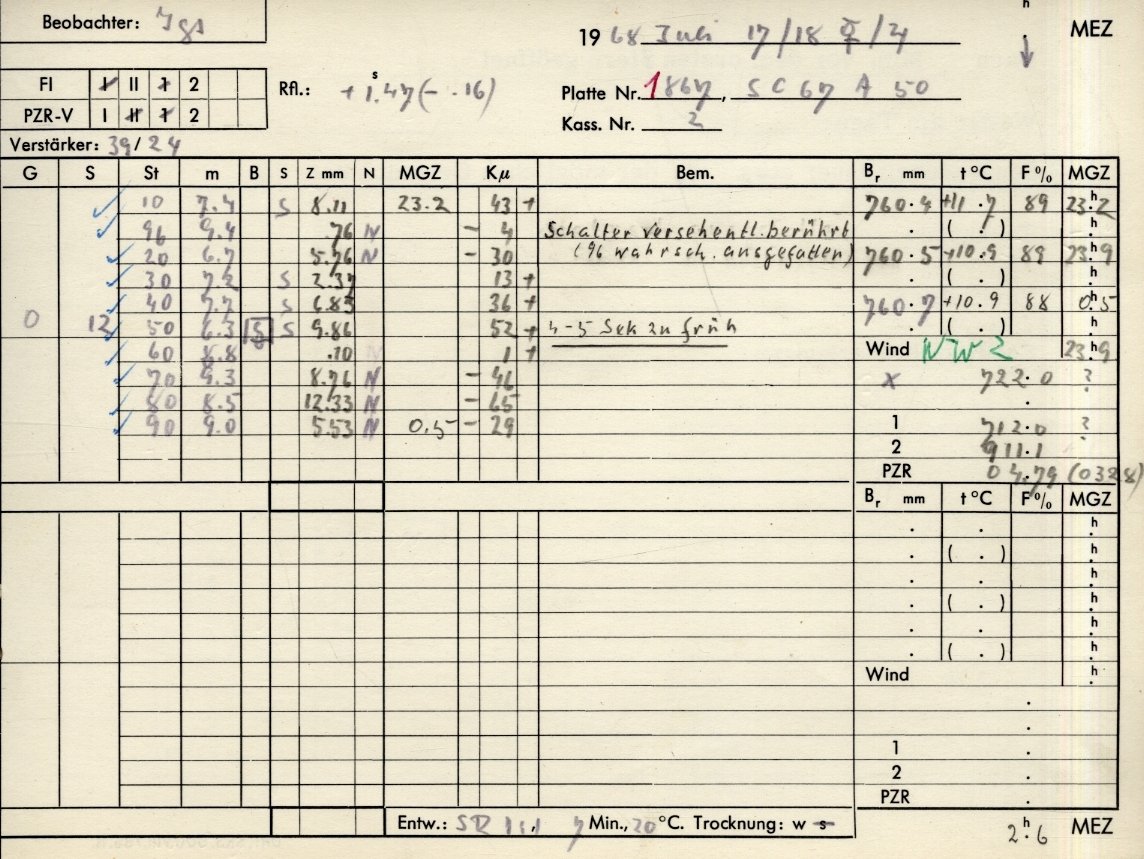 Beobachter: Jgs
h
19 68 Juli 17/18 ☿/♃ MEZ
FI I II 1 2
Rfl.: +1.47 (- .16)
s
Platte Nr. 1867, SC 67 A 50
PZR-V I II 1 2
Kass. Nr. 2
Verstärker: 39/24
G S St m B S Z mm N MGZ Kμ Bem. Br mm t °C F% MGZ
10 7.4 S 8.11 23.2 43 + 760.4 +11.7 89 23.2
96 9.4 76 N - 4 Schalter versehentl. berührt . ( . ) .
20 6.7 5.76 N - 30 (96 wahrsch. ausgefallen) 760.5 +10.9 89 23.9
30 7.2 S 2.37 13 + . ( . ) .
40 7.7 S 6.83 36 + 760.7 +10.9 88 0.5
0 12 50 6.3 S S 9.86 52 + 4-5 Sek zu früh . ( . ) .
60 8.8 .10 N 1 + Wind NW 2 23.9
70 9.3 8.76 N - 46 x 722.0 ?
80 8.5 12.33 N - 65 .
90 9.0 5.53 N 0.5 - 29 1 712.0 ?
2 911.1
PZR 04.79 (0328)
Br mm t °C F% MGZ
. . h
. ( . ) h
. . h
. ( . ) h
. . h
. ( . ) h
Wind h
.
.
1 .
2 .
PZR .
Entw.: SR 1:1, 7 Min., 20 °C. Trocknung: w s
2h.6 MEZ